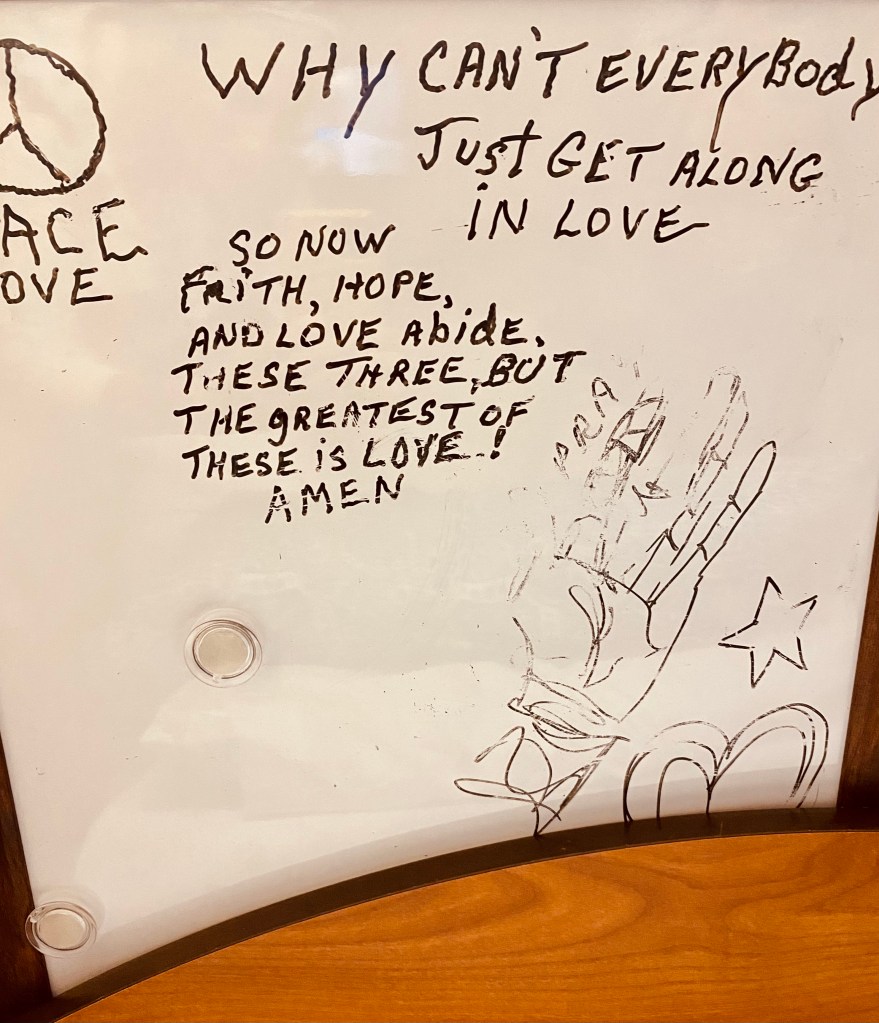 WHY CAN'T EVERYBODY
Just GET ALONG
IN LOVE
ACE
OVE
SO NOW
FAITH, HOPE,
AND LOVE AbidE.
THESE THREE, BUT
THE gREATEST OF
THESE iS LOVE!
AMEN
PRA